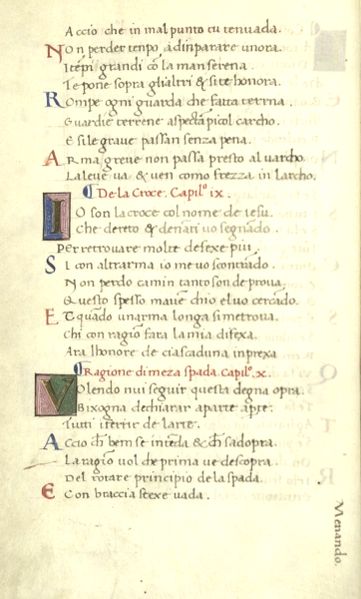 Accio che in mal punto tu tenuada.
Non perder tenpo, ad inparare unora.
I tenpi grandi cō la man serena.
Te pone sopra gli altri & si te honora.
Rompe ogni guarda che fatta terrena.
Guardie terrene aspecta picol carcho.
E sile graue passan senza pena.
Arma greue non passa presto al uarcho.
La leue ua & uen como frezza in larcho.
De la Croce. Capilo ix.
IO son la croce col nome de iesu.
Che dereto & denāti uo segnado.
Per retrouare molte defexe piu.
Si con altr arma io me uo scontrado.
Non perdo camin tanto son de proua.
Questo spesso m auene chio el uo cercado.
Et quado un arma longa si me troua.
Chi con ragion fara la mia difexa.
Ara lhonore de ciascaduna inprexa
Ragione di meza spada. Capilo. x.
VOlendo nui seguir questa degna opra.
Bixogna dechiarar a parte aprte.
Tutti iterir de larte.
Accio ch̄ ben se intēda & ch̄ sadopra.
La ragiō vol che prima ve descopra.
Del rotare principio de la spada.
E con braccia stexe uada.
Menando.